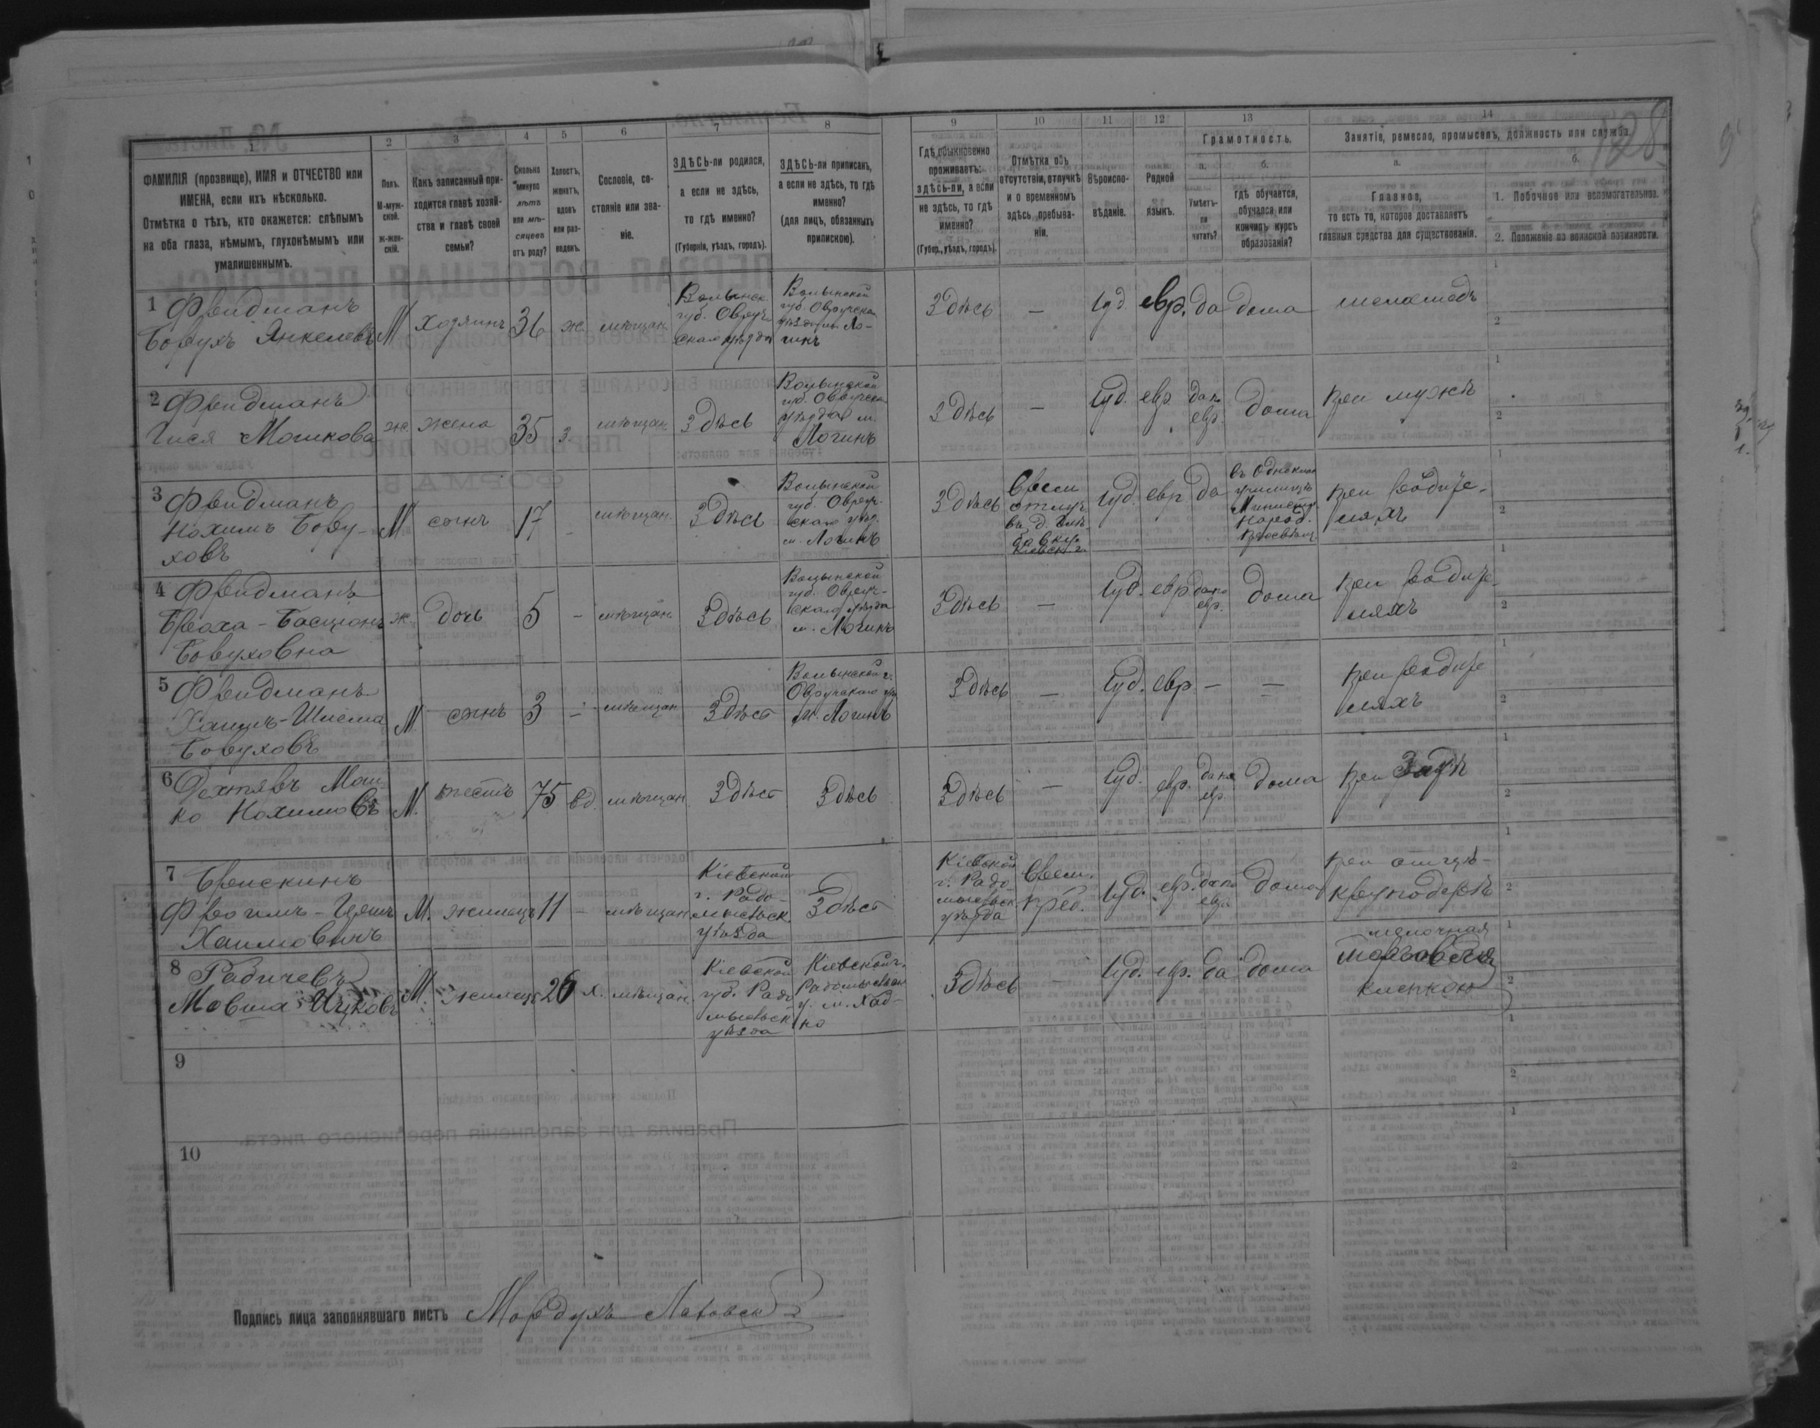 128
1 2 3 4 5 6 7 8 9 10 11 12 13 14
ФАМИЛІЯ (прозвище), ИМЯ и ОТЧЕСТВО или
ИМЕНА, если ихъ нѣсколько.
Отмѣтка о тѣхъ, кто окажется: слѣпымъ
на оба глаза, нѣмымъ, глухонѣмымъ или
умалишеннымъ.
Полъ.
М-муж-
ской.
Ж-жен-
скій.
Какъ записанный при-
ходится главѣ хозяй-
ства и главѣ своей
семьи?
Сколько
минуло
лѣтъ
или мѣ-
сяцевъ
отъ роду?
Холостъ,
женатъ,
вдовъ
или раз-
веденъ.
Сословіе, со-
стояніе или зва-
ніе.
ЗДѢСЬ-ли родился,
а если не здѣсь,
то гдѣ именно?
(Губернія, уѣздъ, городъ).
ЗДѢСЬ-ли приписанъ,
а если не здѣсь, то гдѣ
именно?
(для лицъ, обязанныхъ
припискою).
Гдѣ обыкновенно
проживаетъ:
здѣсь-ли, а если
не здѣсь, то гдѣ
именно?
(Губер., уѣздъ, городъ).
Отмѣтка объ
отсутствіи, отлучкѣ
и о временномъ
здѣсь пребыва-
ніи.
Вѣроиспо-
вѣданіе.
Родной
языкъ.
Грамотность.
а.
Умѣетъ-
ли
читать?
б.
Гдѣ обучается,
обучался или
кончилъ курсъ
образованія?
Занятіе, ремесло, промыселъ, должность или служба.
а.
Главное,
то есть то, которое доставляетъ
главныя средства для существованія.
б.
1. Побочное или вспомогательное.
2. Положеніе по воинской повинности.
1 Фридманъ
Борухъ Янкелевъ
М хозяинъ 36 ж. мѣщан.
Волынск.
губ. Овруч-
скаго уѣзда
Волынской
губ. Овручска
уѣзда м. Ло-
гинъ
Здѣсь — Іуд. евр. да дома меламедъ
2 Фридманъ
Гися Мошкова
ж. жена 35 з. мѣщан. Здѣсь
Волынской
губ. Овручска
уѣзда м.
Логинъ
Здѣсь — Іуд. евр. да по
евр. дома при мужѣ
3 Фридманъ
Нохимъ Бору-
ховъ
М. сынъ 17 - мѣщан. Здѣсь
Волынской
губ. Овруч-
скаго уѣзд.
м. Логинъ
Здѣсь
Врем.
отлуч.
Іуд. евр да
въ Однокласс
училищѣ
Министер.
Народ.
Просвѣщ.
при родите-
ляхъ
4 Фридманъ
Броха-Басціонъ
Боруховна
ж. дочь 5 - мѣщан. Здѣсь
Волынской
губ. Овруч-
скаго уѣзда
м. Логинъ
Здѣсь — Іуд. евр да по
евр. дома
при родите
ляхъ
5 Фридманъ
Хаимъ-Шлема
Боруховъ
М сынъ 3 - мѣщан. Здѣсь
Волынской г.
Овручскаго у.
м. Логинъ
Здѣсь — Іуд. евр — —
при родите
ляхъ
6 Дехтяръ Мош
ко Нохимовъ
М. тесть 75 вд. мѣщан. Здѣсь Здѣсь
Здѣсь — Іуд. евр. да по
евр. дома при Зятѣ
7 Брискинъ
Фроимъ-Цемъ
Хаимовичъ
М. жилецъ 11 - мѣщан.
Кіевской
г. Радо-
мысльск.
уѣзда
Здѣсь
Кіевской
г. Радо
мысльск
уѣзда
Врем.
преб. Іуд. евр. да по
евр. дома
при отцѣ-
круподерѣ
8 Радичевъ
Мовша Ицковъ
М. жилецъ 26 х. мѣщан.
Кіевской
губ. Радо
мысльск
уѣзда
Кіевской г.
Радомысльск
у. м. Хаб-
но
Здѣсь — Іуд. евр. да дома
мелочная
торговля
9
10
Подпись лица заполнявшаго листъ Мордухъ